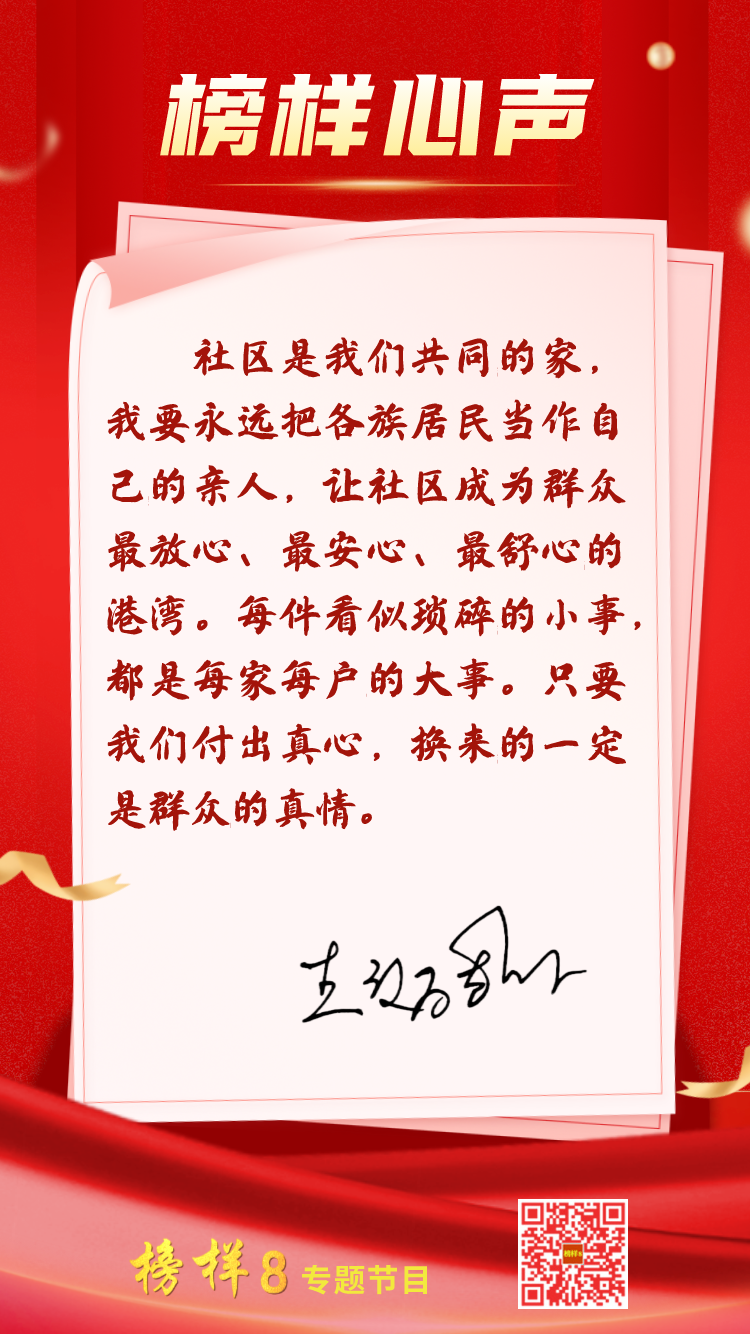 榜样心声
社区是我们共同的家，
我要永远把各族居民当作自
己的亲人，让社区成为群众
最放心、最安心、最舒心的
港湾。每件看似琐碎的小事，
都是每家每户的大事。只要
我们付出真心，换来的一定
是群众的真情。
榜样8 专题节目
榜样8